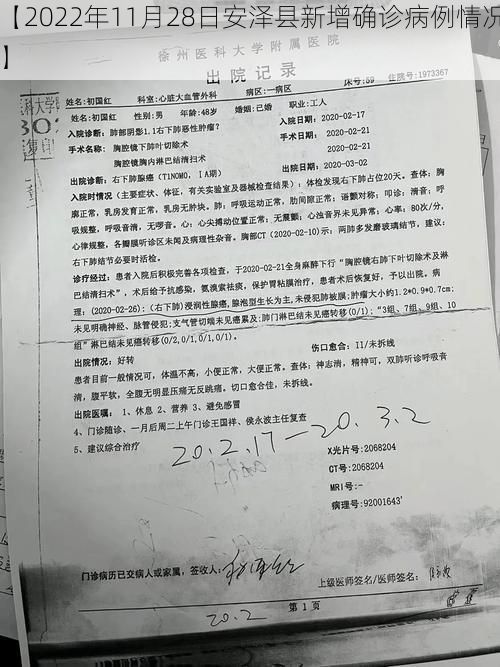 【2022年11月28日安泽县新增确诊病例情况
】
徐州医科大学附属医院
出院记录
姓名:初国红 科室:心脏大血管外科 病区:一病区 床号:59 住院号:1973367
性别:男 年龄:48岁 婚姻:已婚 职业:工人
入院诊断:肺部阴影1.1右下肺恶性肿瘤? 入院日期:2020-02-17
手术名称:胸腔镜下肺叶切除术 2020-02-21
胸腔镜胸内淋巴结清扫术 2020-02-21
出院诊断:右下肺腺癌(T1N0M0,IA期) 出院日期:2020-03-02
入院时情况(主要症状、体征,有关实验室及器械检查结果):体检发现右下肺占位20天。查体:胸
廓正常,乳房发育正常,乳房无肿块。肺:呼吸运动正常,肋间隙正常;语颤对称;叩诊:清音;呼
吸规整,呼吸音清,无啰音。心:心尖搏动位置正常;无震颤;心浊音界未见异常;心率:80次/分,
心律规整,各瓣膜听诊区未闻及病理性杂音。胸部CT(2020-02-10)示:两肺多发磨玻璃结节,建议:
右下肺结节必要时活检。
诊疗经过:患者入院后积极完善各项检查,于2020-02-21全身麻醉下行“胸腔镜右肺下叶切除术及淋
巴结清扫术”,术后给予抗感染,氨溴索祛痰,保护胃粘膜治疗,患者术后恢复好,予以出院。病
理:(2020-02-26):(右下肺)浸润性腺癌,腺泡型生长为主,未侵犯肺被膜;肿瘤大小约1.2*0.9*0.7cm;
未见明确神经、脉管侵犯;支气管切端未见癌累及;肺门淋巴结未见癌转移(0/1);“3组、7组、9组、10
组”淋巴结未见癌转移(0/2,0/1,0/1,0/1)。
出院情况:好转 伤口愈合:II/未拆线
患者目前一般情况可,体温不高,小便正常,大便正常。查体:神志清,精神可,双肺听诊呼吸音
清,腹平软,全腹无明显压痛无反跳痛。切口愈合佳,未拆线。
出院医嘱:1、休息 2、营养 3、避免感冒
4、门诊随诊、一月后周二上午门诊王国祥、侯永波主任复查
5、建议综合治疗
20.2.17—20.3.2
X光片号:2068204
CT号:2068204
MRI号:-
病理号:92001643'
门诊病历已交病人或家属,签收人:
上级医师签名/医师签名:
第1页
20.2